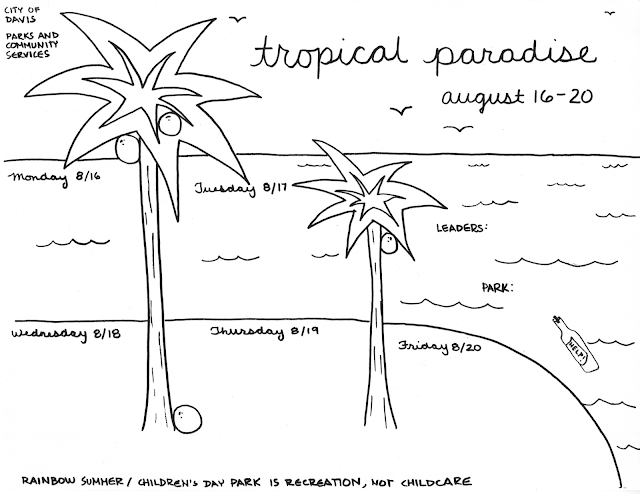 CITY OF
DAVIS
PARKS AND
COMMUNITY
SERVICES
tropical paradise
august 16-20
Monday 8/16
Tuesday 8/17
LEADERS:
PARK:
Wednesday 8/18
Thursday 8/19
Friday 8/20
HELP!
RAINBOW SUMMER/ CHILDREN'S DAY PARK IS RECREATION, NOT CHILDCARE